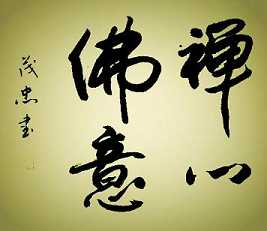 禪心
佛意
茂忠書